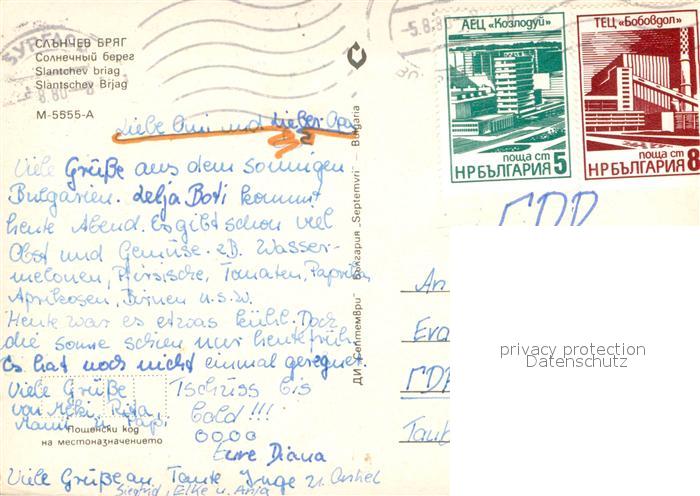 СЛЪНЧЕВ БРЯГ
Солнечный берег
Slantchev briag
Slantschev Brjag
M-5555-A
БУРГАС
-5.8.80
8.80-8
АЕЦ „Козлодуй“
поща ст 5
НР БЪЛГАРИЯ
ТЕЦ „Бобовдол“
поща ст 8
НР БЪЛГАРИЯ
Liebe Omi und lieber Opa
Viele Grüße aus dem sonnigen
Bulgarien. Lelja Boti kommt
heute Abend. Es gibt schon viel
Obst und Gemüse. zB. Wasser-
melonen, Pfirsische, Tomaten, Paprika,
Aprikosen, Birnen u.s.w.
Heute war es etwas kühl. Doch
die Sonne schien nur heute früh.
Es hat noch nicht einmal geregnet.
Viele Grüße
von Meki, Rita,
Mami u. Papi
Tschüss bis
bald!!!
OOOO
Eure Diana
Viele Grüße an Tante Inge u.
Siegrid, Elke u. Anja
Пощенски код
на местоназначението
ДИ „Септември“ България „Septemvri“ — Bulgaria
GDR
An
Eva
ГДР
Taub
privacy protection
Datenschutz